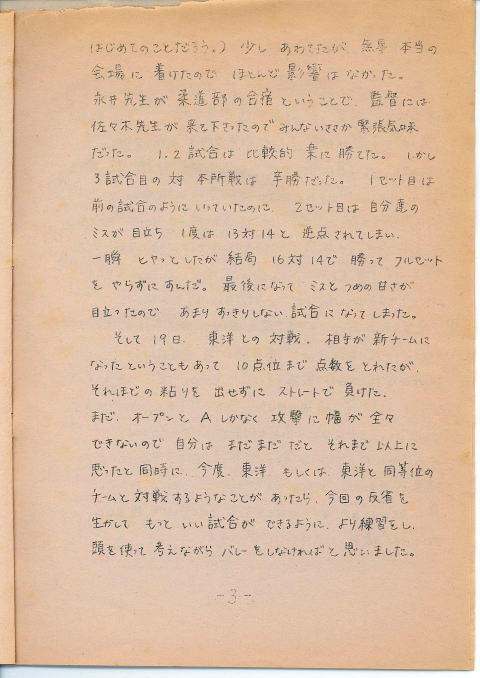 はじめてのことだろう。) 少し あわてたが 無事 本当の
会場に 着けたので ほとんど 影響は なかった。
永井先生が 柔道部の合宿ということで、監督には
佐々木先生が 来て下さったので みんないささか 緊張気味
だった。 1.2試合は 比較的 楽に 勝てた。 しかし
3試合目の 対 本所戦は 辛勝だった。 1セット目は
前の試合のように いっていたのに、 2セット目は 自分達の
ミスが 目立ち 1度は 13対14と 逆点されてしまい、
一瞬 ヒヤッとしたが 結局 16対14で 勝って フルセット
を やらずに すんだ。 最後になって ミスと つめの 甘さが
目立ったので あまり すっきりしない 試合に なってしまった。
そして 19日、 東洋との 対戦。 相手が 新チームに
なったということもあって 10点位まで 点数を とれたが、
それほどの 粘りを 出せずに ストレートで 負けた。
まだ、オープンと Aしかなく 攻撃に 幅が 全々
できないので 自分は まだまだ だと それまで 以上に
思ったと 同時に、今度、東洋 もしくは、東洋と 同等位の
チームと 対戦するようなことが あったら、今回の反省を
生かして もっと いい試合が できるように、より練習をし、
頭を使って 考えながら バレーをしなければと 思いました。
-3-